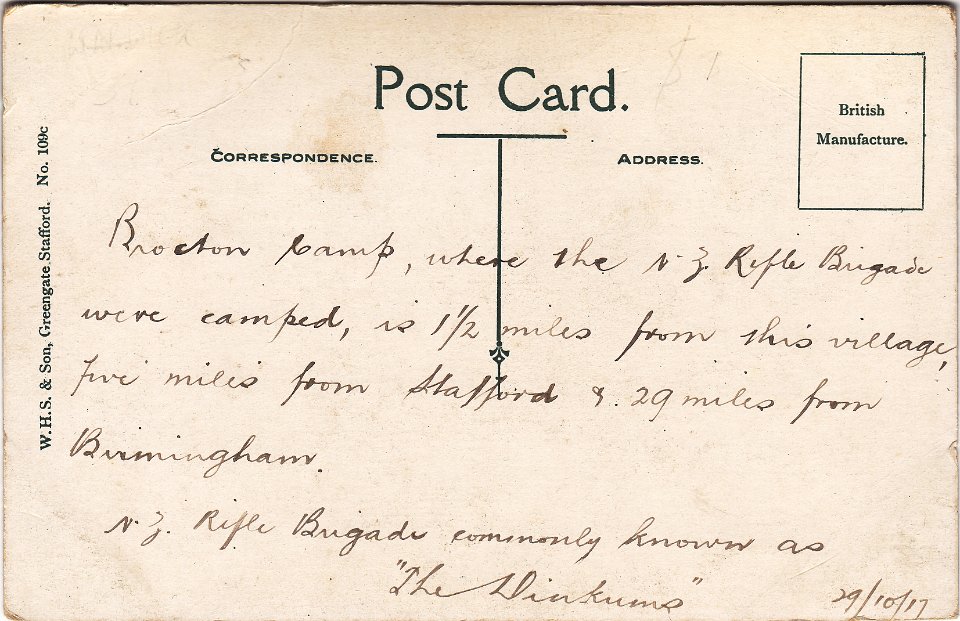 Post Card.
British
Manufacture.
CORRESPONDENCE.
ADDRESS.
W.H.S. & Son, Greengate Stafford. No. 109c
Brocton Camp, where the N Z. Rifle Brigade
were camped, is 1 1/2 miles from this village,
five miles from Stafford & 29 miles from
Birmingham.
N. Z. Rifle Brigade commonly known as
"The Dinkums"
29/10/17